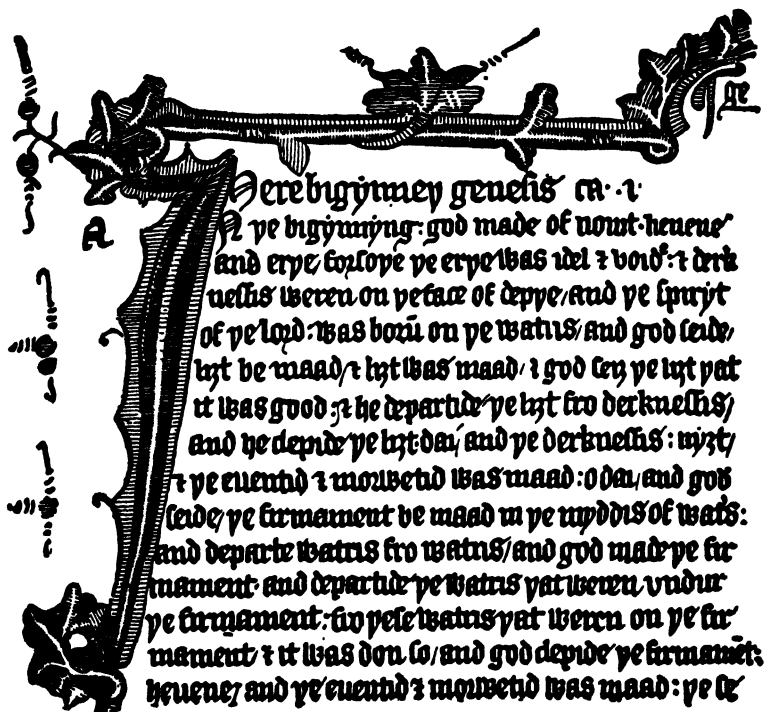 ge
Here bigynneþ genesis ca· ·i·
A
In þe bigynnyng: god made of nouȝt·heuene
and erþe/ forsoþe þe erþe was idel ⁊ void: ⁊ derk
nessis weren on þe face of depþe/ and þe spiryt
of þe lord: was borū on þe watris/ and god seide/
liȝt be maad/ ⁊ liȝt was maad/ ⁊ god seȝ þe liȝt þat
it was good: ⁊ he departide þe liȝt fro derknessis/
and he clepide þe liȝt·dai/ and þe derknessis: nyȝt/
⁊ þe euentid ⁊ morwetid was maad: o dai/ and god
seide/ þe firmament be maad in þe myddis of wat's:
and departe watris fro watris/ and god made þe fir
mament· and departide þe watris þat weren vndur
þe firmament: fro þese watris þat weren on þe fir
mament/ ⁊ it was don so/ and god clepide þe firmamēt:
heuene/ and þe euentid ⁊ morwetid was maad: þe se